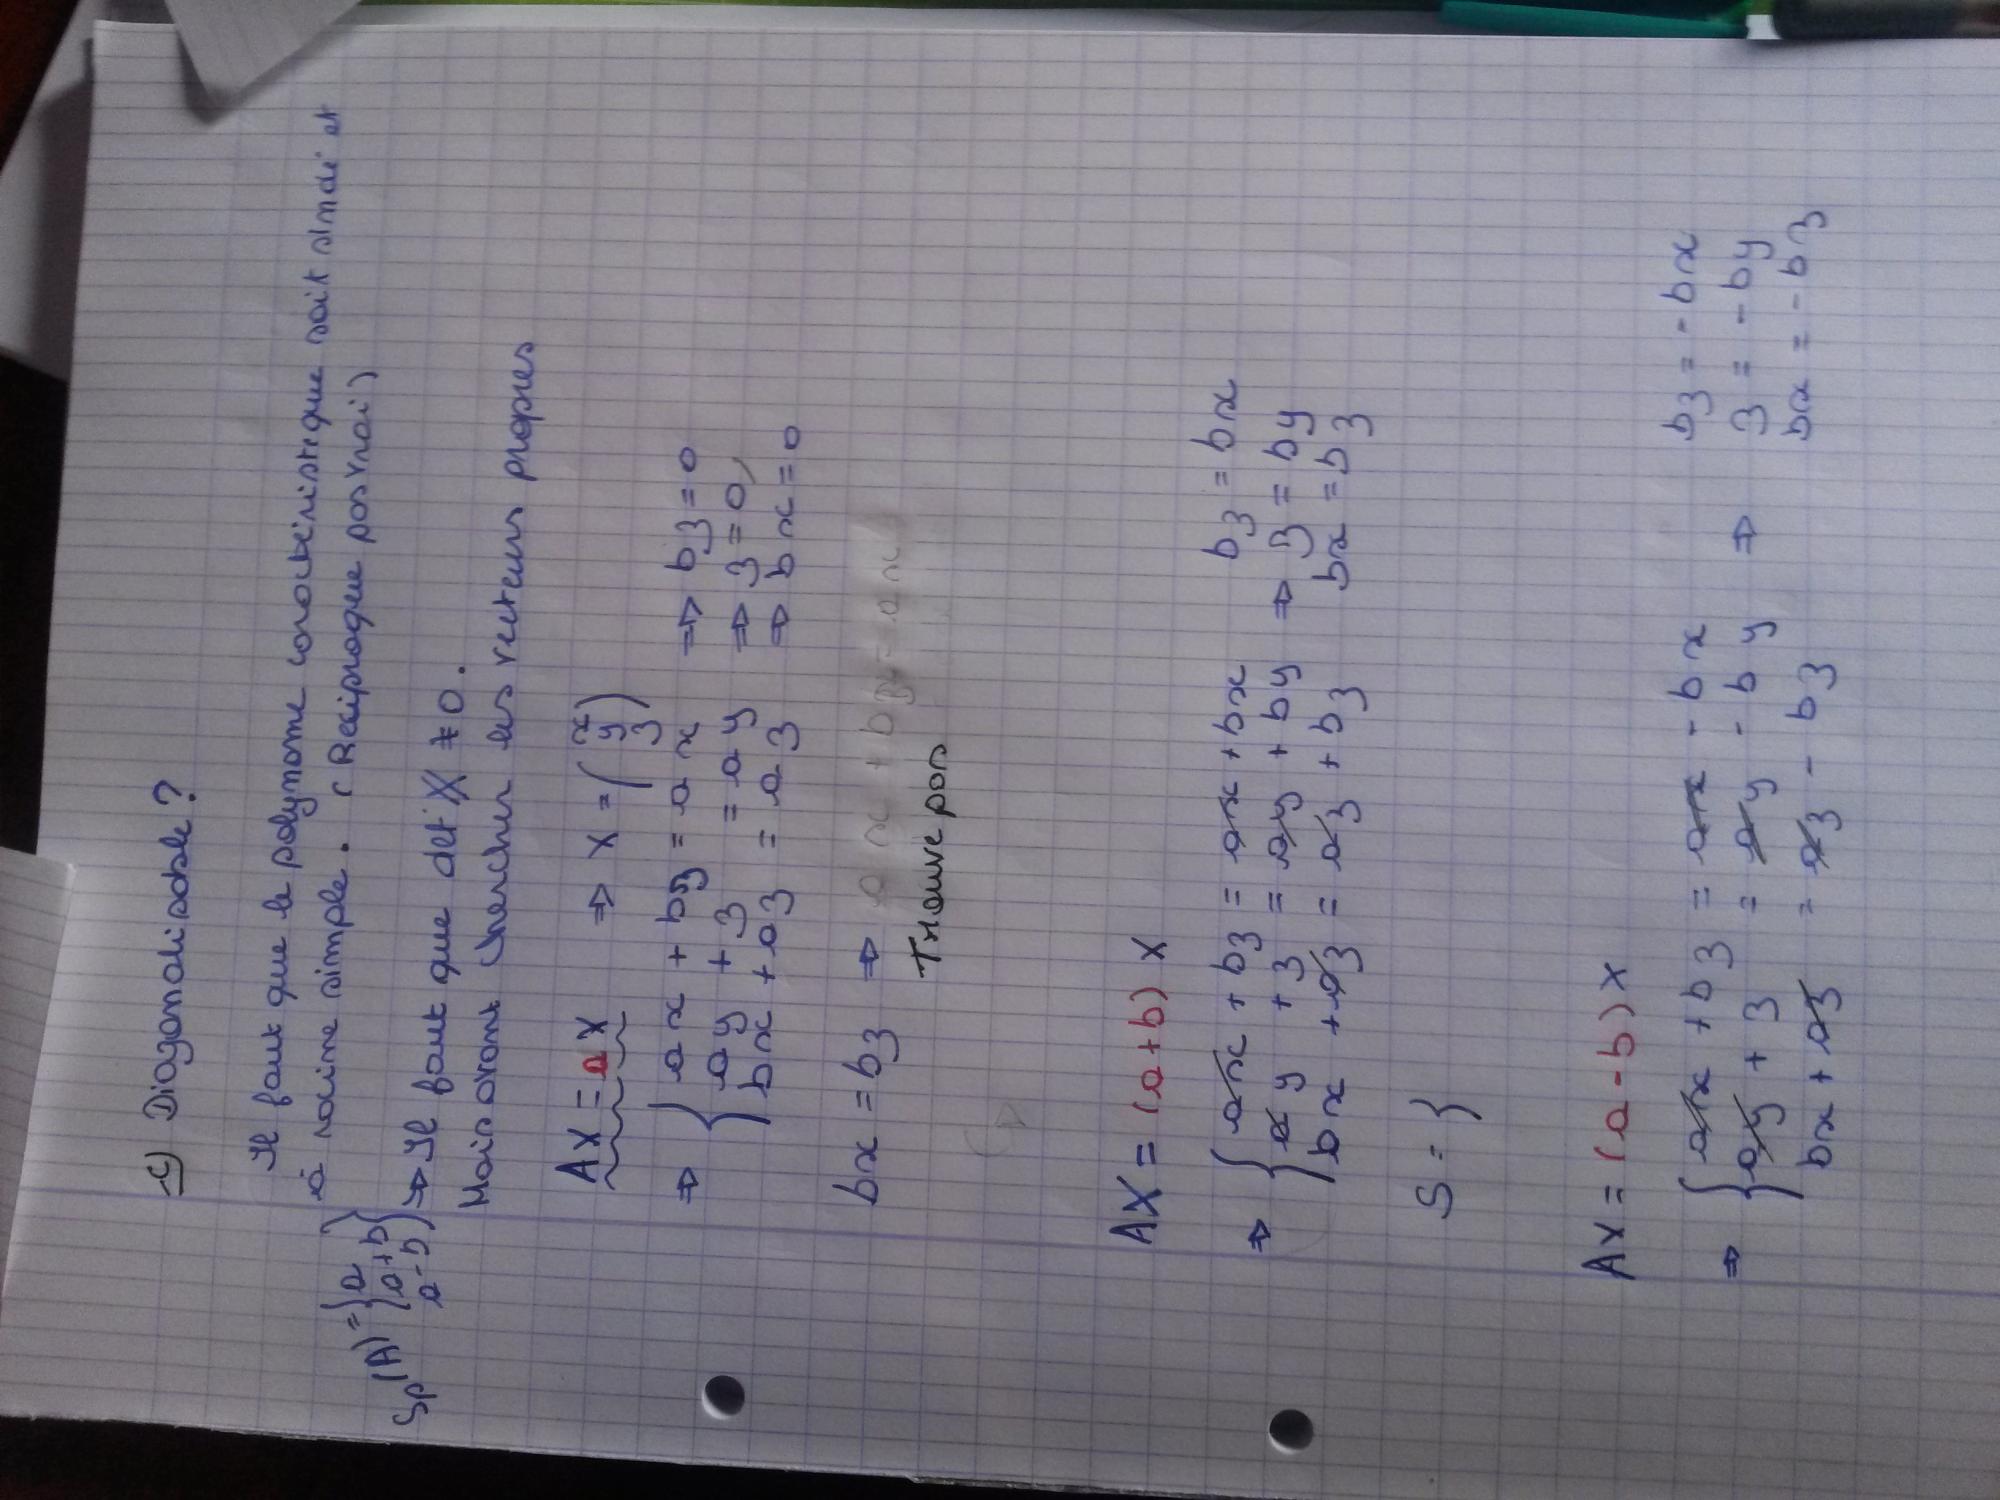 c) Diagonalisable?
Il faut que le polynome caractéristique soit sindé et
à racine simple. (Réciproque pas vrai)
Sp(A) = { a
a+b
a-b }
→ Il faut que det X ≠ 0.
Maisorant chercher les vecteurs propres
AX = aX ⇒ X = (x
y
z)
⇒ { ax + bz = ax ⇒ bz = 0
ay + z = ay ⇒ z = 0
bx + az = az ⇒ bx = 0
bx = bz ⇒ ax + bz = ax
Trouve pas
AX = (a+b) X
⇒ { ax + bz = ax + bx bz = bx
ay + z = ay + by ⇒ z = by
bx + az = az + bz bx = bz
S = {
AX = (a-b) X
⇒ { ax + bz = ax - bx bz = -bx
ay + z = ay - by ⇒ z = -by
bx + az = az - bz bx = -bz